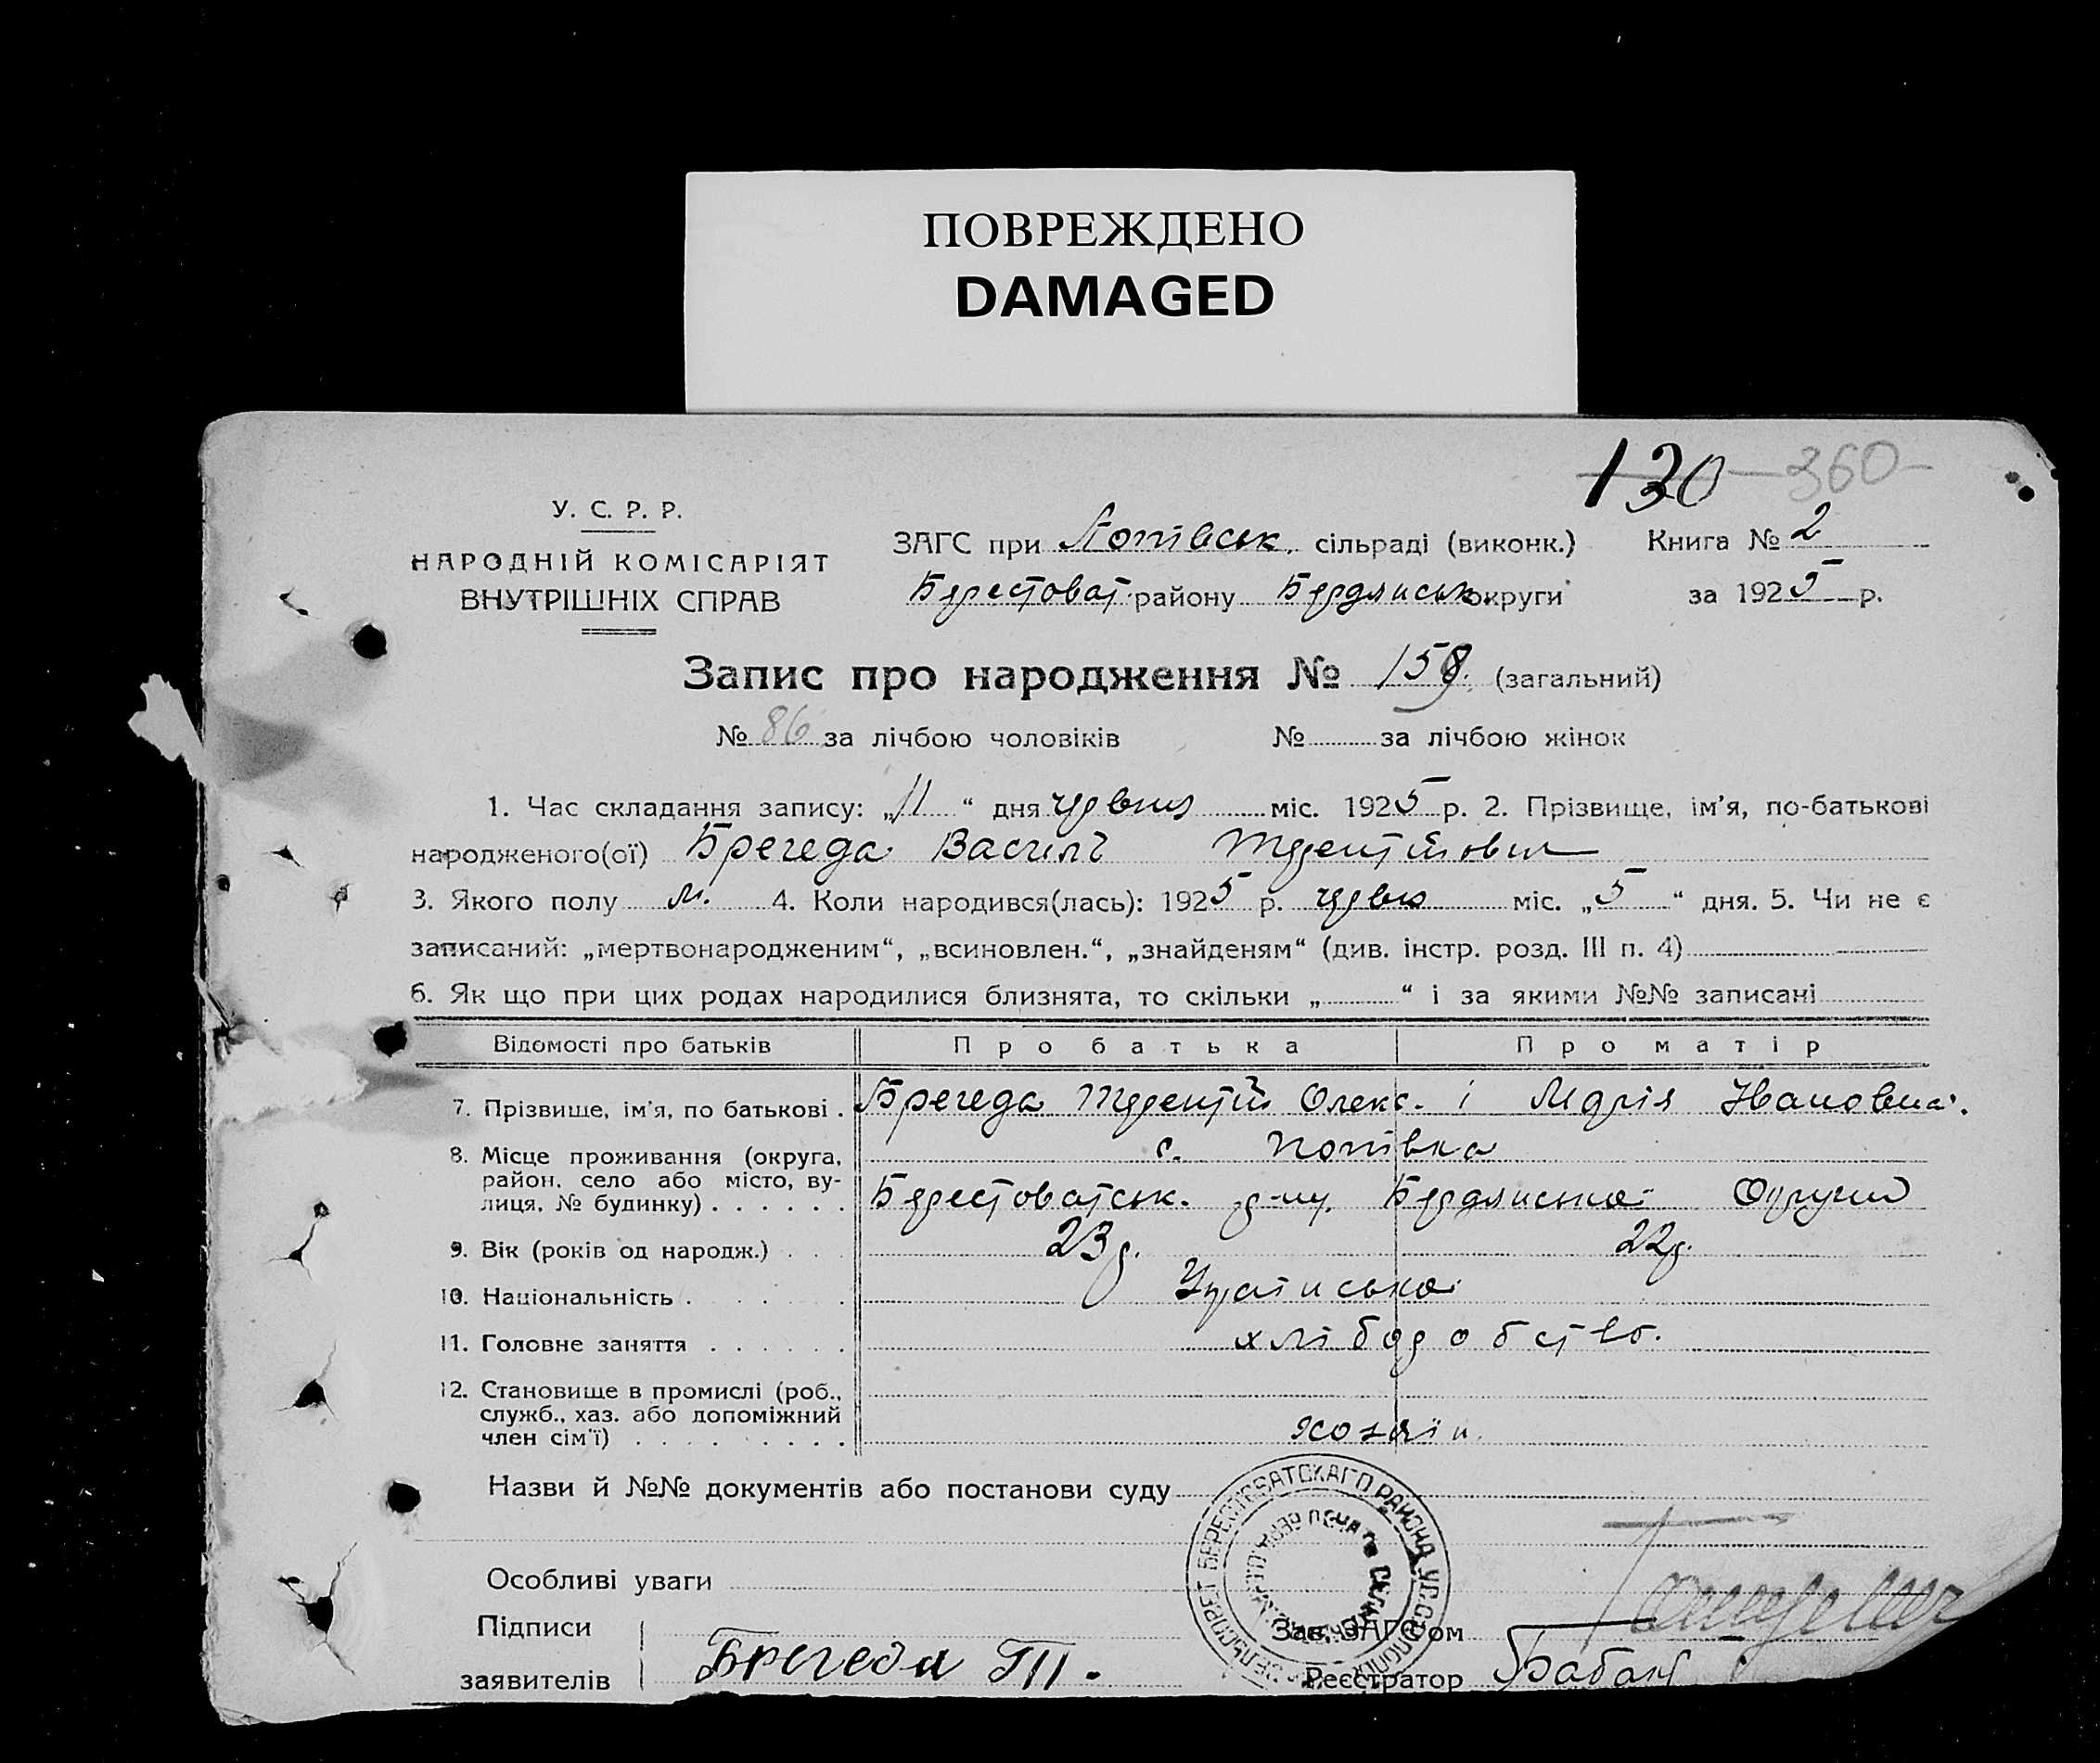 ПОВРЕЖДЕНО
DAMAGED
130 — 360 —
У. С. Р. Р.
НАРОДНІЙ КОМІСАРІЯТ
ВНУТРІШНІХ СПРАВ
ЗАГС при Попівськ. сільраді (виконк.) Книга № 2
Берестоват. району Бердянськ. округи за 1925 р.
Запис про народження № 159. (загальний)
№ 86 за лічбою чоловіків № за лічбою жінок
1. Час складання запису: „11“ дня червня міс. 1925 р. 2. Прізвище, ім’я, по-батькові
народженого(ої) Брегеда Василь Терентійович
3. Якого полу м. 4. Коли народився(лась): 1925 р. червня міс. „5“ дня. 5. Чи не є
записаний: „мертвонародженим“, „всиновлен.“, „знайденям“ (див. інстр. розд. III п. 4)
6. Як що при цих родах народилися близнята, то скільки „ “ і за якими №№ записані
Відомості про батьків Про батька Про матір
7. Прізвище, ім’я, по батькові . Брегеда Терентій Олекс. і Марія Івановна.
8. Місце проживання (округа, район, село або місто, вулиця, № будинку) . . . . . . с. Попівка
Берестоватськ. р-ну. Бердянської Округи
9. Вік (років од народж.) . . . 23 р. 22 р.
10. Національність . . . . . Українська
11. Головне заняття . . . . . . хліборобство.
12. Становище в промислі (роб., служб., хаз. або допоміжний член сім’ї) . . . . . . . . . хозяїн.
Назви й №№ документів або постанови суду
Особливі уваги
Підписи
заявителів Брегеда Т.
Зав. ЗАГС’ом
Реєстратор Бабак
БЕРЕСТОВАТСКАГО РАЙОНА У.С.С.